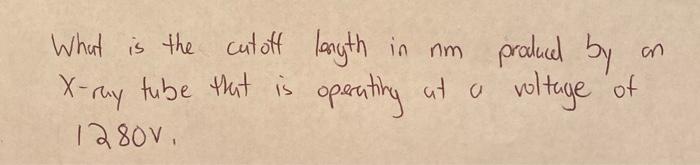 What is the cutoff length in nm produced by an
X-ray tube that is operating at a voltage of
1280V.